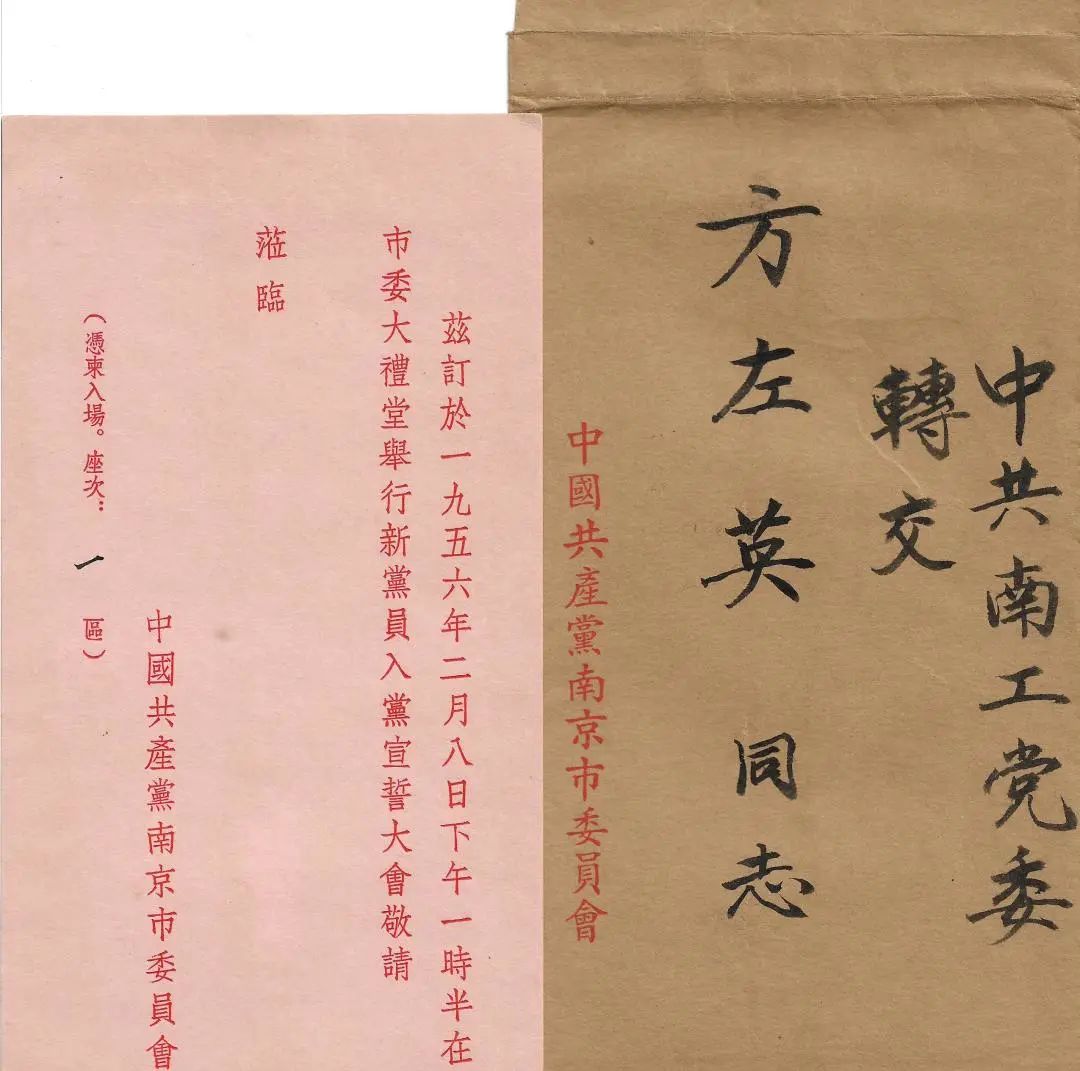 中共南工党委
轉交
方左英同志
中國共產黨南京市委員會
茲訂於一九五六年二月八日下午一時半在
市委大禮堂舉行新黨員入黨宣誓大會敬請
蒞臨
中國共產黨南京市委員會
（憑柬入場。座次：一區）